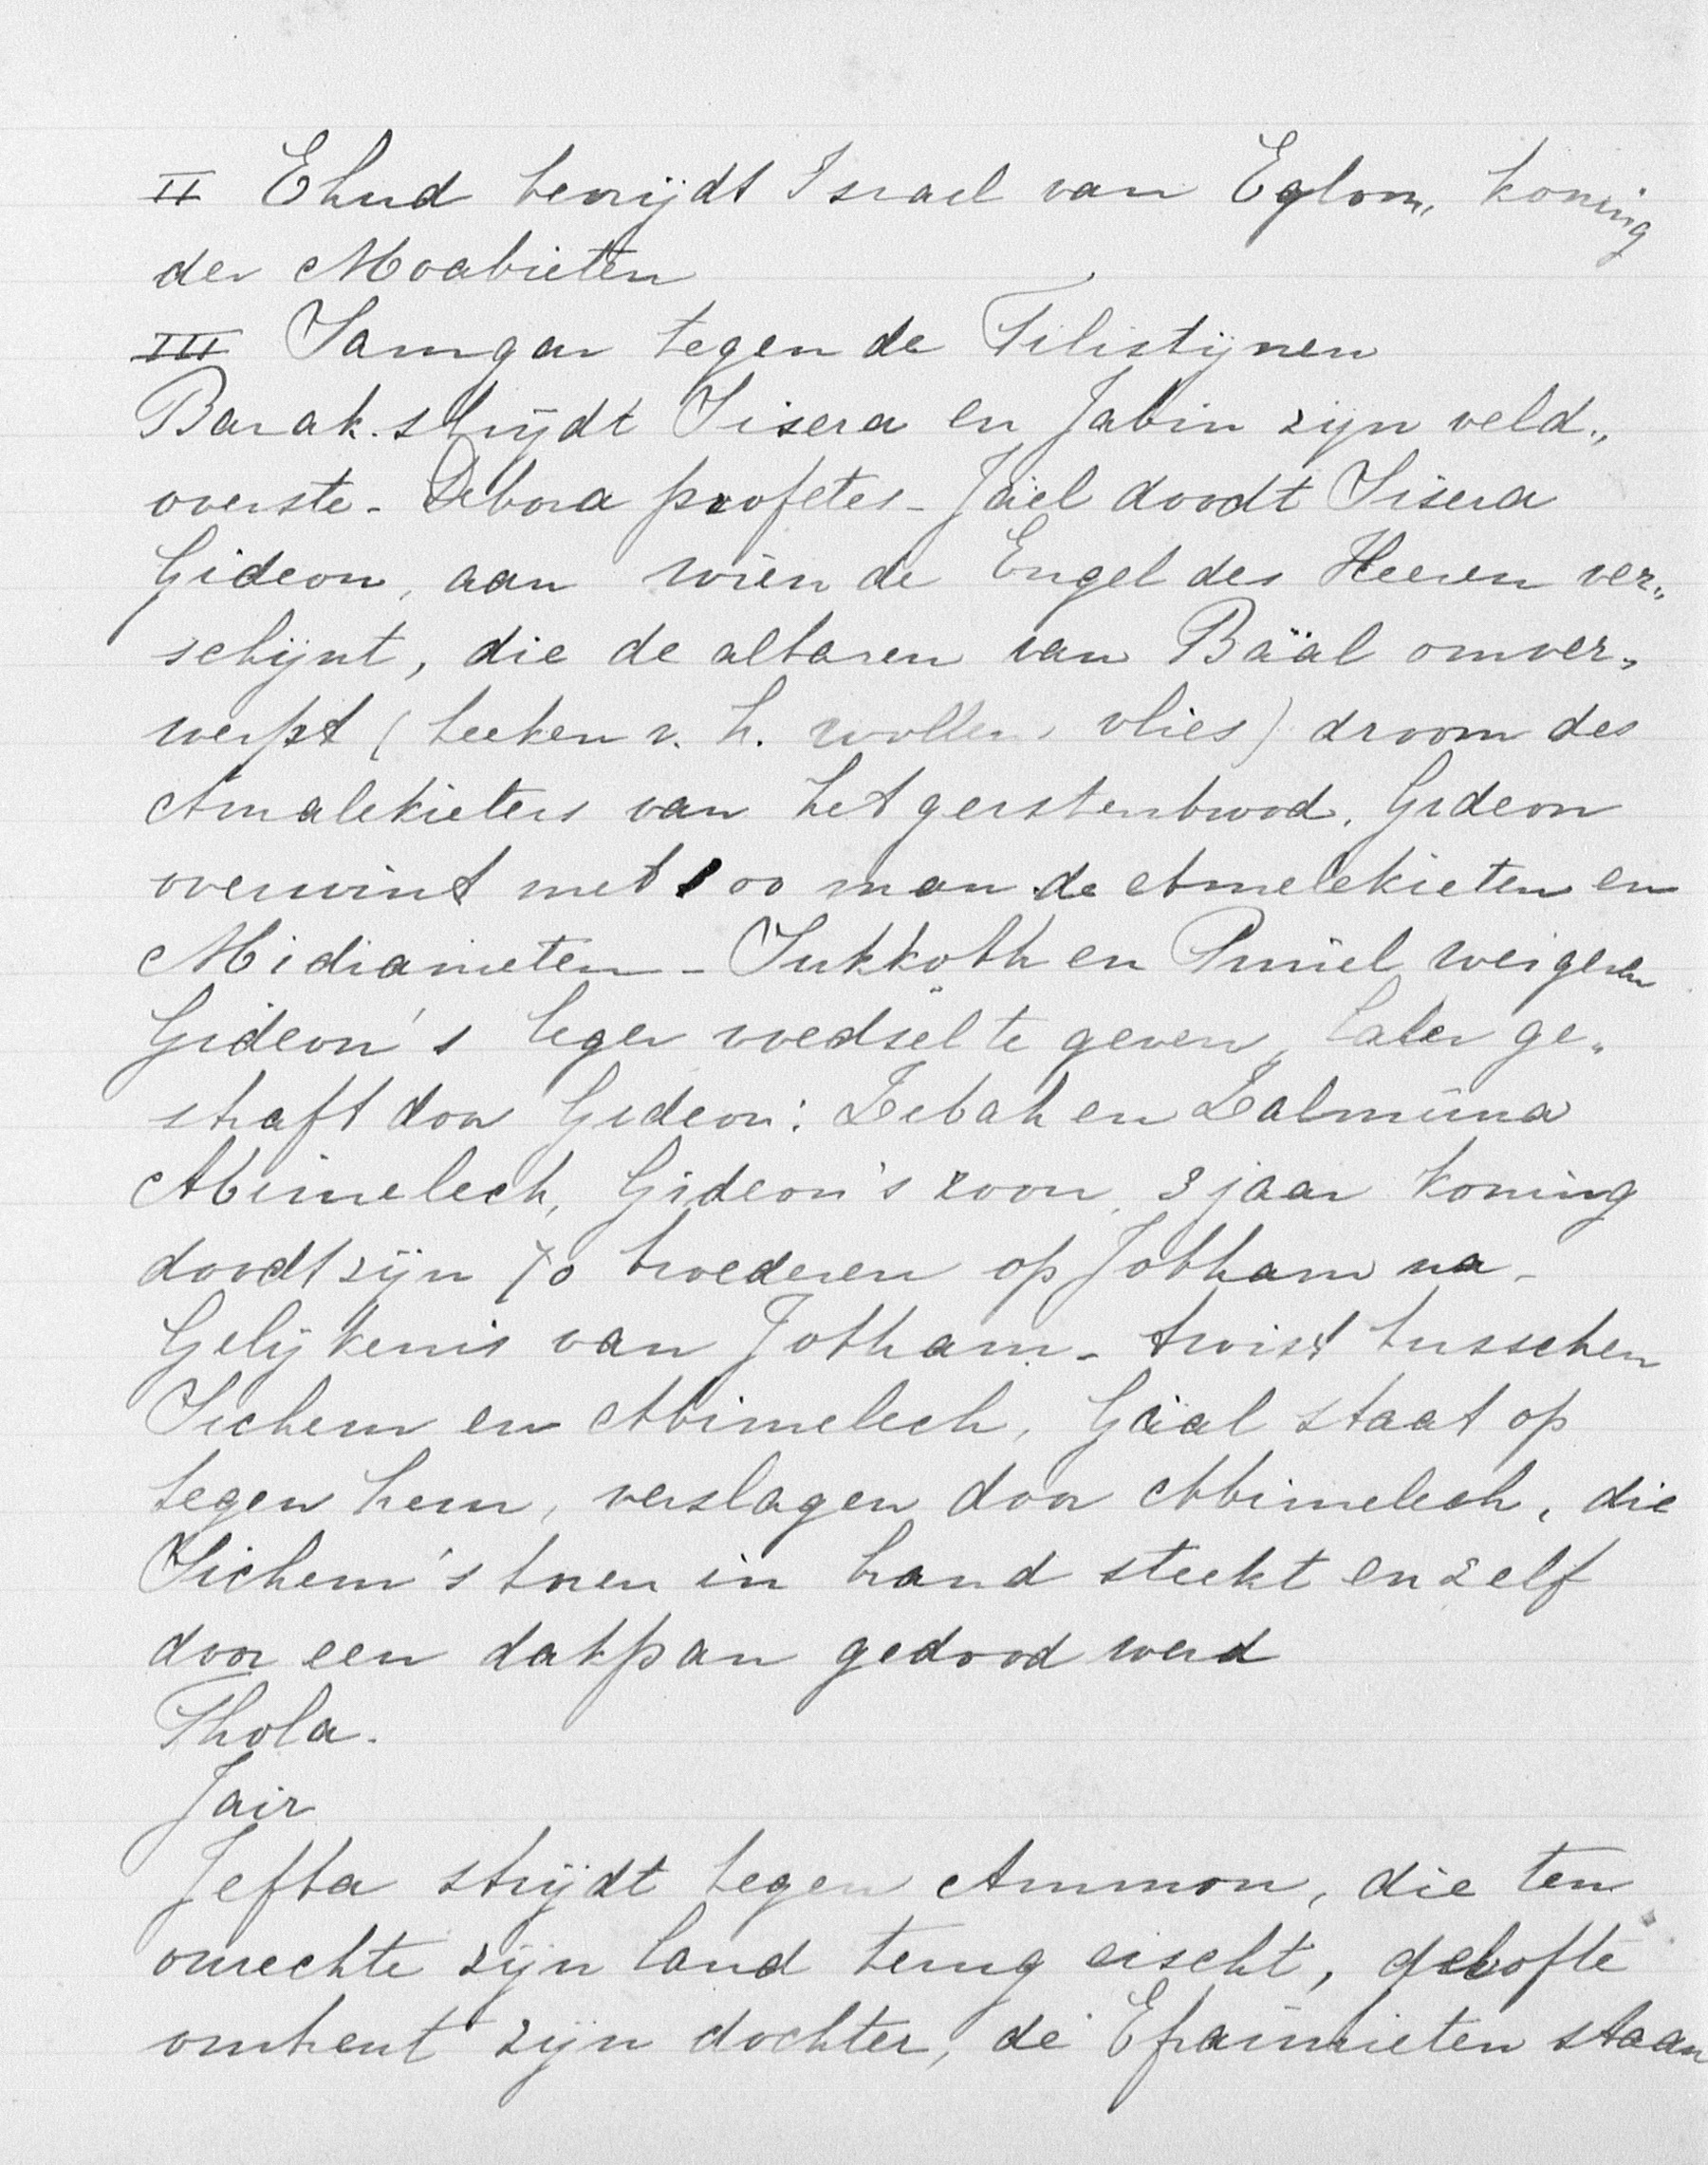 II Ehud bevrijdt Israel van Eglon, koning
der Moabieten
III Samgar tegen de Filistijnen
Barak strijdt Sisera en Jabin zijn veld„
overste - Debora profetes - Jaël doodt Sisera
Gideon, aan wien de Engel des Heeren ver„
schijnt, die de altaren van Baäl omver„
werpt (teeken v. h. wollen vlies) droom des
Amalekieters van het gerstenbrood. Gideon
overwint met 300 man de Amelekieten en
Midianieten - Sukkoth en Pnuël weigeren
Gideon's leger voedsel te geven, later ge„
straft door Gideon: Zebah en Zalmuna
Abimelech, Gideon's zoon, 3 jaar koning
doodt zijn 70 broederen op Jotham na -
Gelijkenis van Jotham - twist tusschen
Sichem en Abimelech, Gaäl staat op
tegen hem, verslagen door Abimelech, die
Sichem's toren in brand steekt en zelf
door een dakpan gedood werd
Thola.
Jair
Jefta strijdt tegen Ammon, die ten
onrechte zijn land terug eischt, gelofte
omtrent zijn dochter, de Efraimieten staan